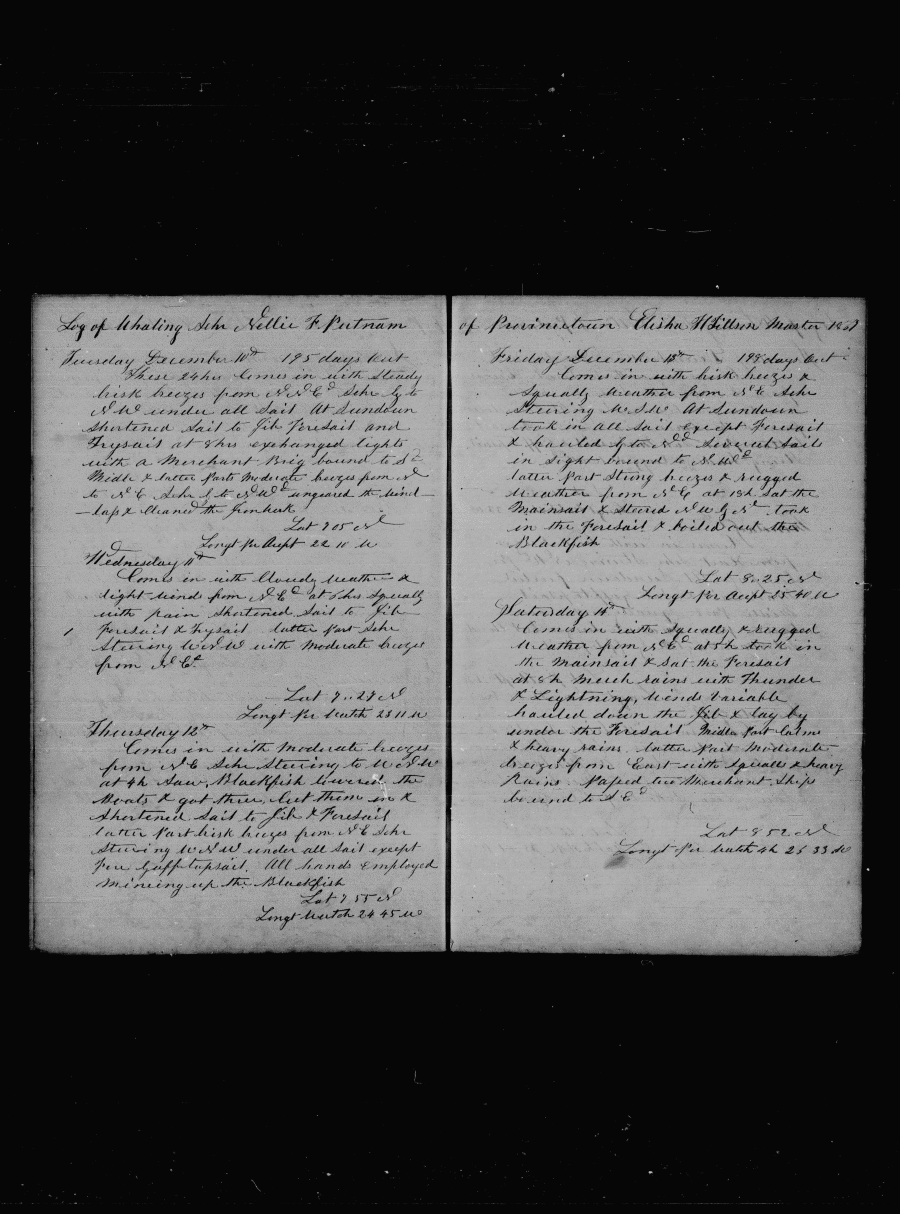 Log of Whaling Schr Nellie F. Putnam
Tuesday December 10th 195 days Out
These 24 hrs Comes in with Steady
brisk breezes from N N Ed Schr by to
N W under all Sail At Sundown
Shortened Sail to Jib Foresail and
Trysail at 8 hrs exchanged lights
with a Merchant Brig bound to Sd
Middle & latter Parts Moderate breezes from N
to N E Schr by to N Wd ungeared the Wind
-lass & Cleaned the Gunhouse
Lat 7 05 N
Longt Per Acpt 22 10 W
Wednesday 11th
Comes in with Cloudy Weather &
light wind from N Ed at 6 hrs Squally
with rain Shortened Sail to Jib
Foresail & Trysail latter Part Schr
Steering W N W with Moderate breezes
from N Ed
Lat 7 27 N
Longt Per Watch 23 11 W
Thursday 12th
Comes in with Moderate breezes
from N E Schr Steering to W N W
at 4h Saw Blackfish lowered the
Boats & got three, Cut them in &
Shortened Sail to Jib & Foresail
latter Part brisk breezes from N E Schr
Steering W N W under all Sail except
Fore Gafftopsail. All hands employed
Mincing up the Blackfish
Lat 7 55 N
Longt Watch 24 45 W
of Provincetown Elisha H Tillson Master
Friday December 13th 198 days Out
Comes in with brisk breezes &
Squally Weather from N E Schr
Steering W. N W. At Sundown
took in all Sail except Foresail
& hauled by to Nd Several Sails
in Sight bound to N. Wd
latter Part Strong breezes & rugged
Weather from N E at 18h Sat the
Mainsail & Steered N W by N took
in the Foresail & boiled out the
Blackfish
Lat 8 25 N
Longt Per Acpt 25 40 W
Saturday 14th
Comes in with Squally & rugged
Weather from N Ed at 5h took in
the Mainsail & Sat the Foresail
at 8h Much rains with Thunder
& Lightning, Winds Variable
hauled down the Jib & lay by
under the Foresail Middle Part Calms
& heavy rains. latter Part Moderate
breezes from East with Squalls & heavy
Rains. Passed two Merchant Ships
bound to S Ed
Lat 8 52 N
Longt Per Watch 4h 25 33 W